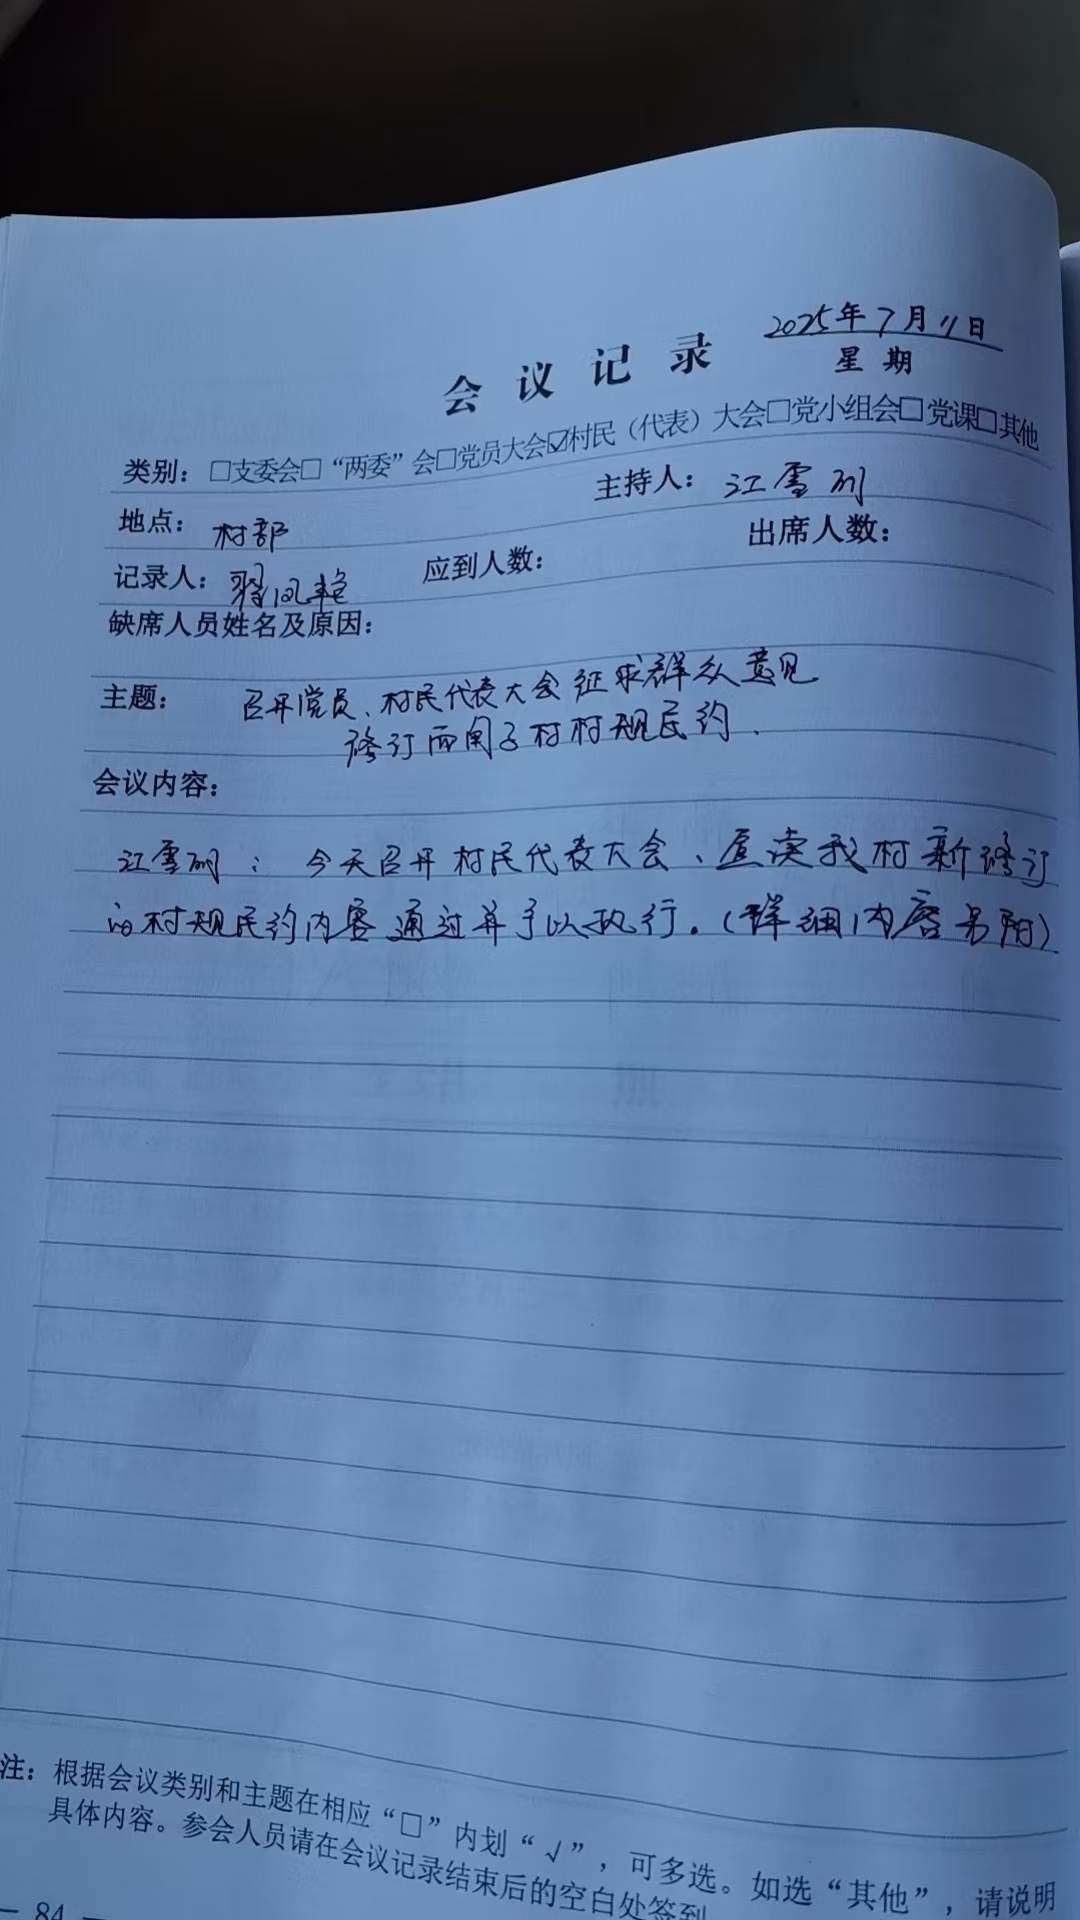 2025年7月11日
会议记录
星期
类别：□支委会□“两委”会□党员大会☑村民（代表）大会□党小组会□党课□其他
地点：村部 主持人：江雪刚
记录人：凤艳 应到人数： 出席人数：
缺席人员姓名及原因：
主题：召开党员、村民代表大会征求群众意见
修订西围子村村规民约.
会议内容：
江雪刚：今天召开村民代表大会、宣读我村新修订
的村规民约内容通过并予以执行。(详细内容另附)
注：根据会议类别和主题在相应“□”内划“√”，可多选。如选“其他”，请说明
具体内容。参会人员请在会议记录结束后的空白处签到
— 84 —